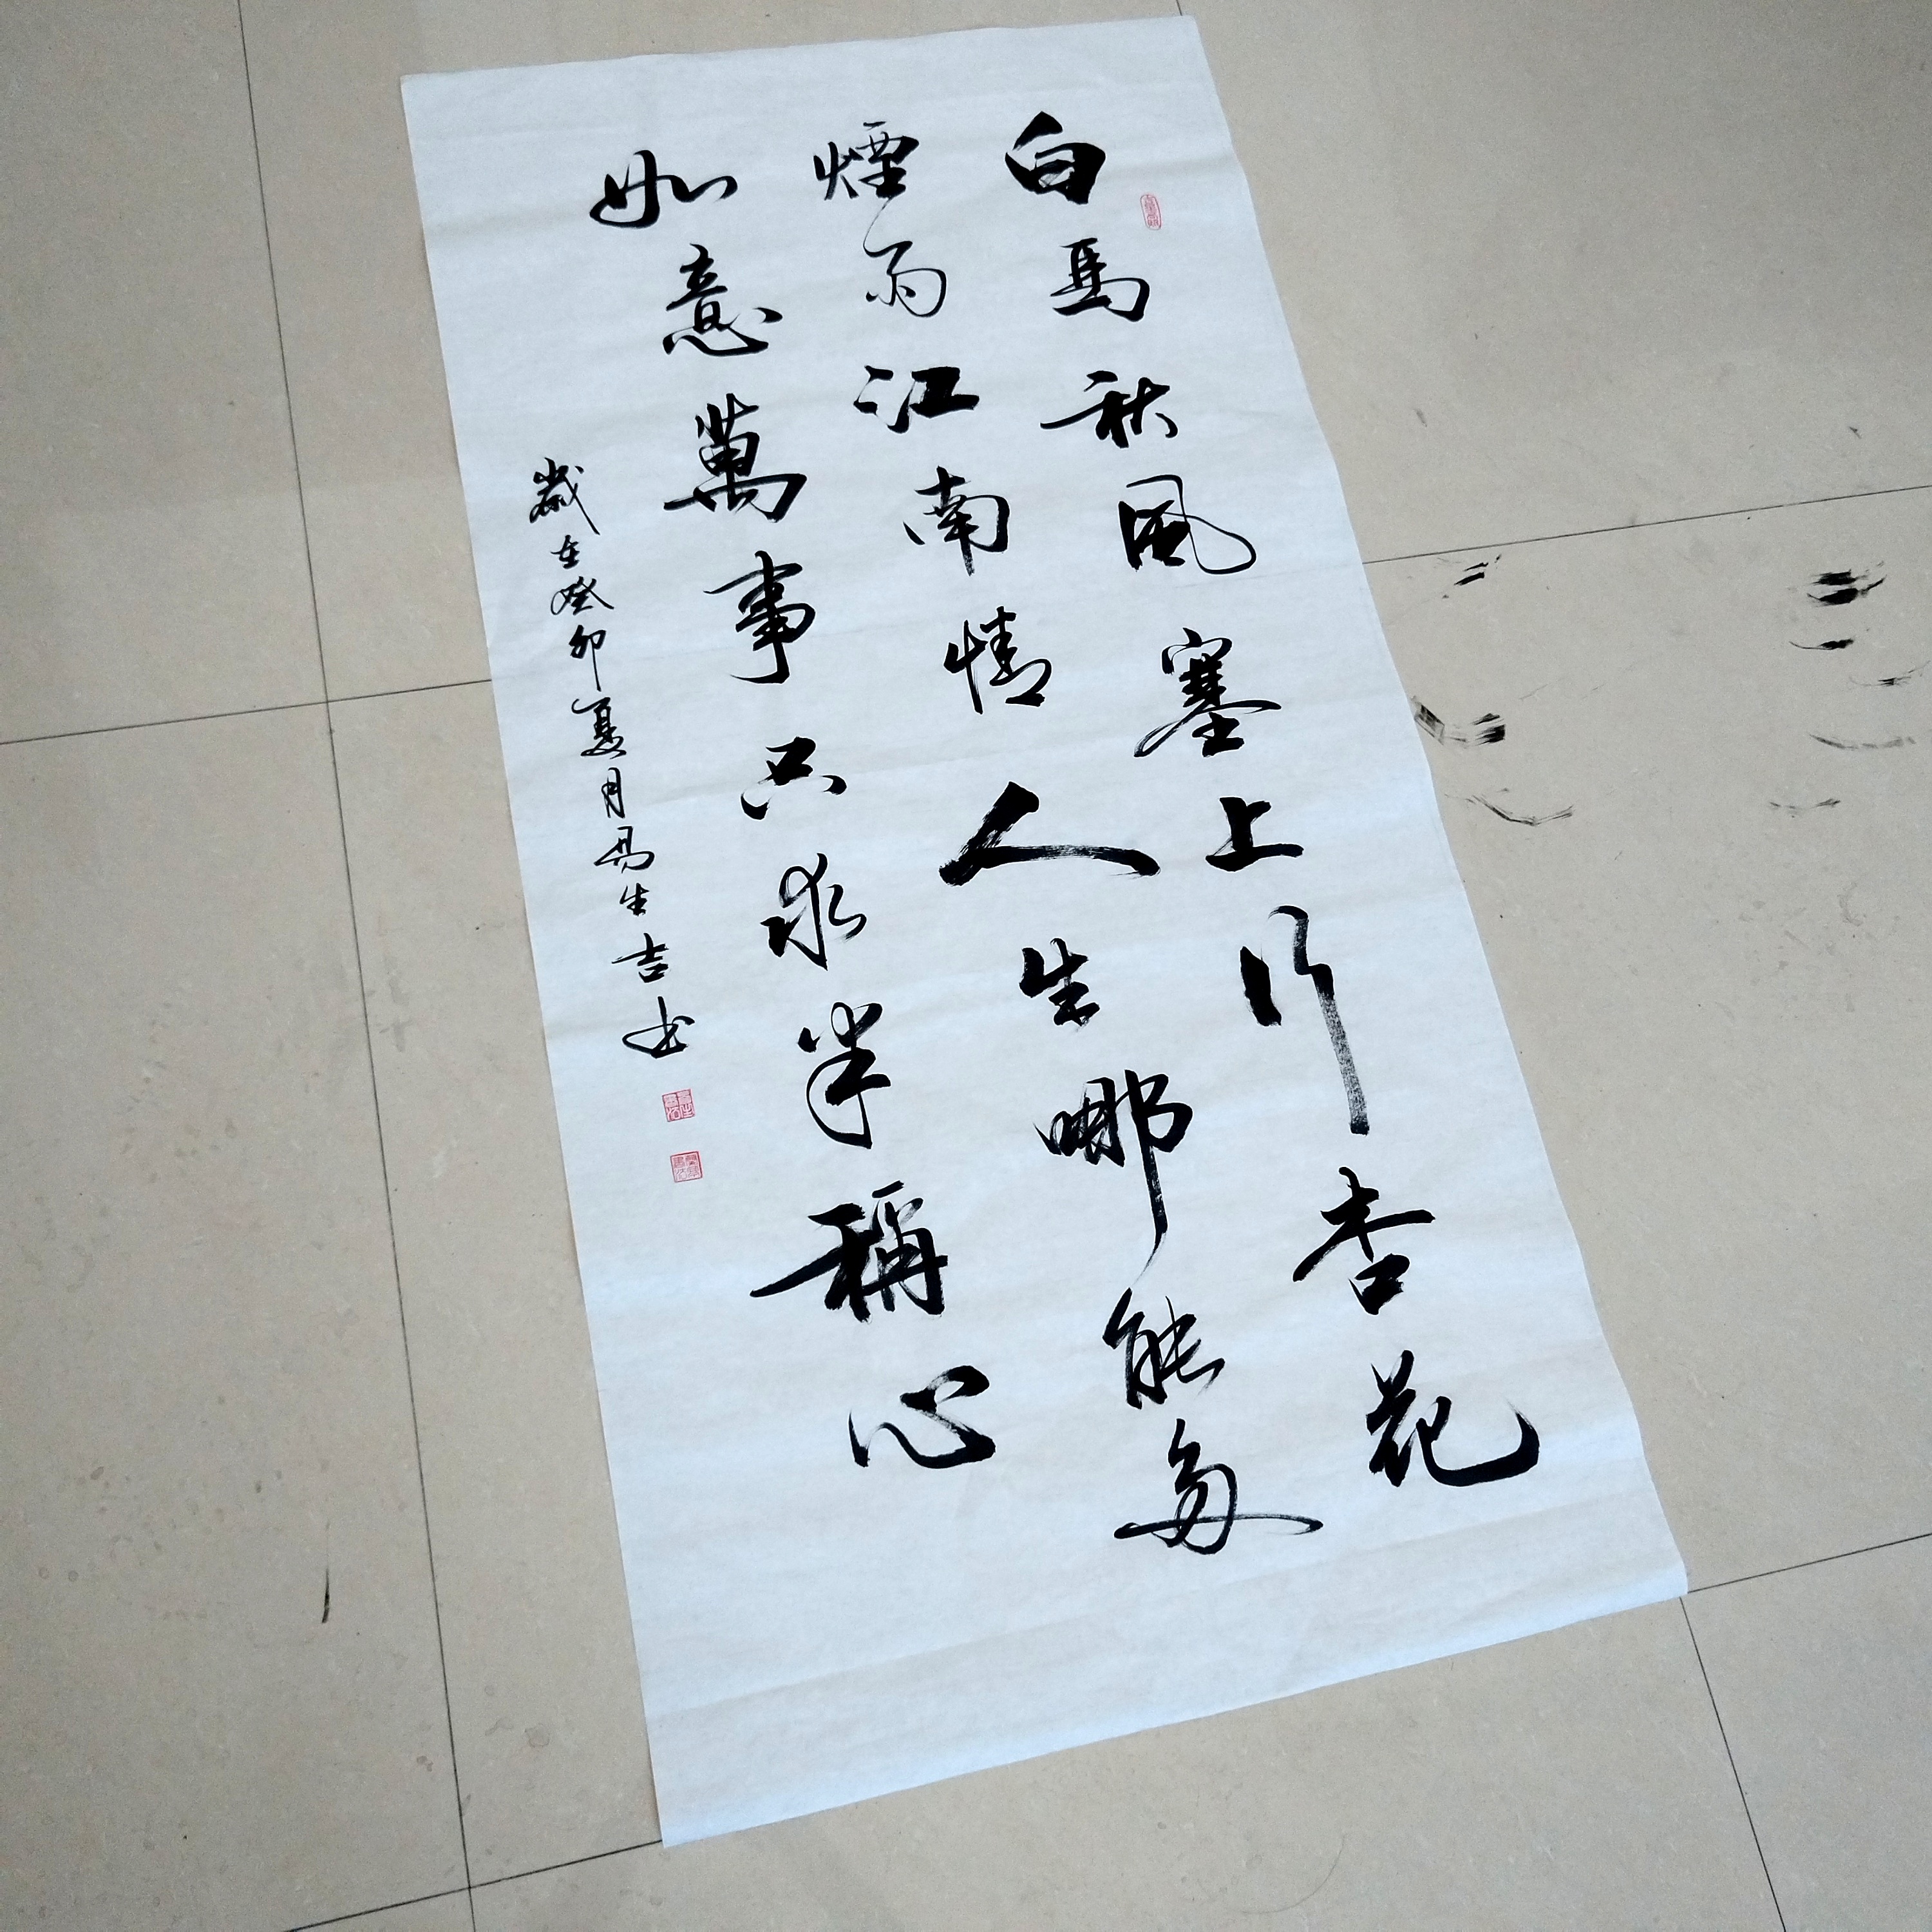 白馬秋風塞上行杏花
煙雨江南情人生哪能多
如意萬事只求半稱心
歲在癸卯夏月易生吉书